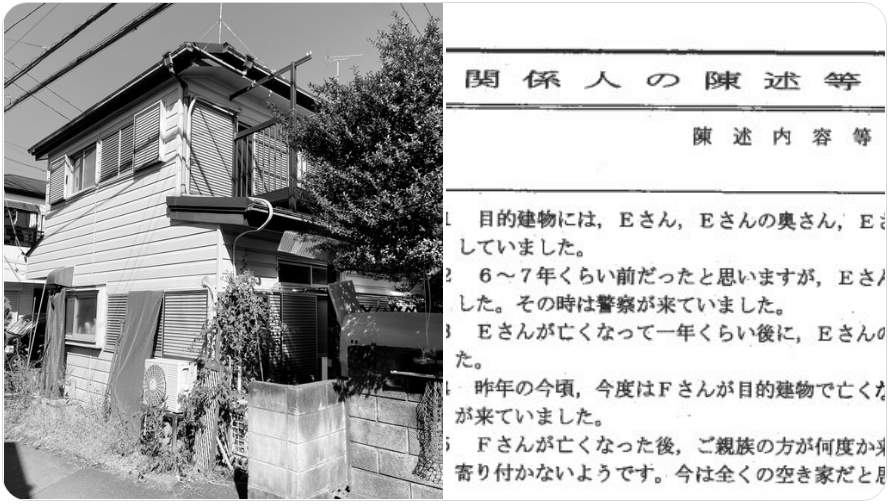 関係人の陳述等
陳述内容等
1 目的建物には，Ｅさん，Ｅさんの奥さん，Ｅさ
していました。
2 ６～７年くらい前だったと思いますが，Ｅさん
した。その時は警察が来ていました。
3 Ｅさんが亡くなって一年くらい後に，Ｅさんの
た。
4 昨年の今頃，今度はＦさんが目的建物で亡くな
が来ていました。
5 Ｆさんが亡くなった後，ご親族の方が何度か来
寄り付かないようです。今は全くの空き家だと思